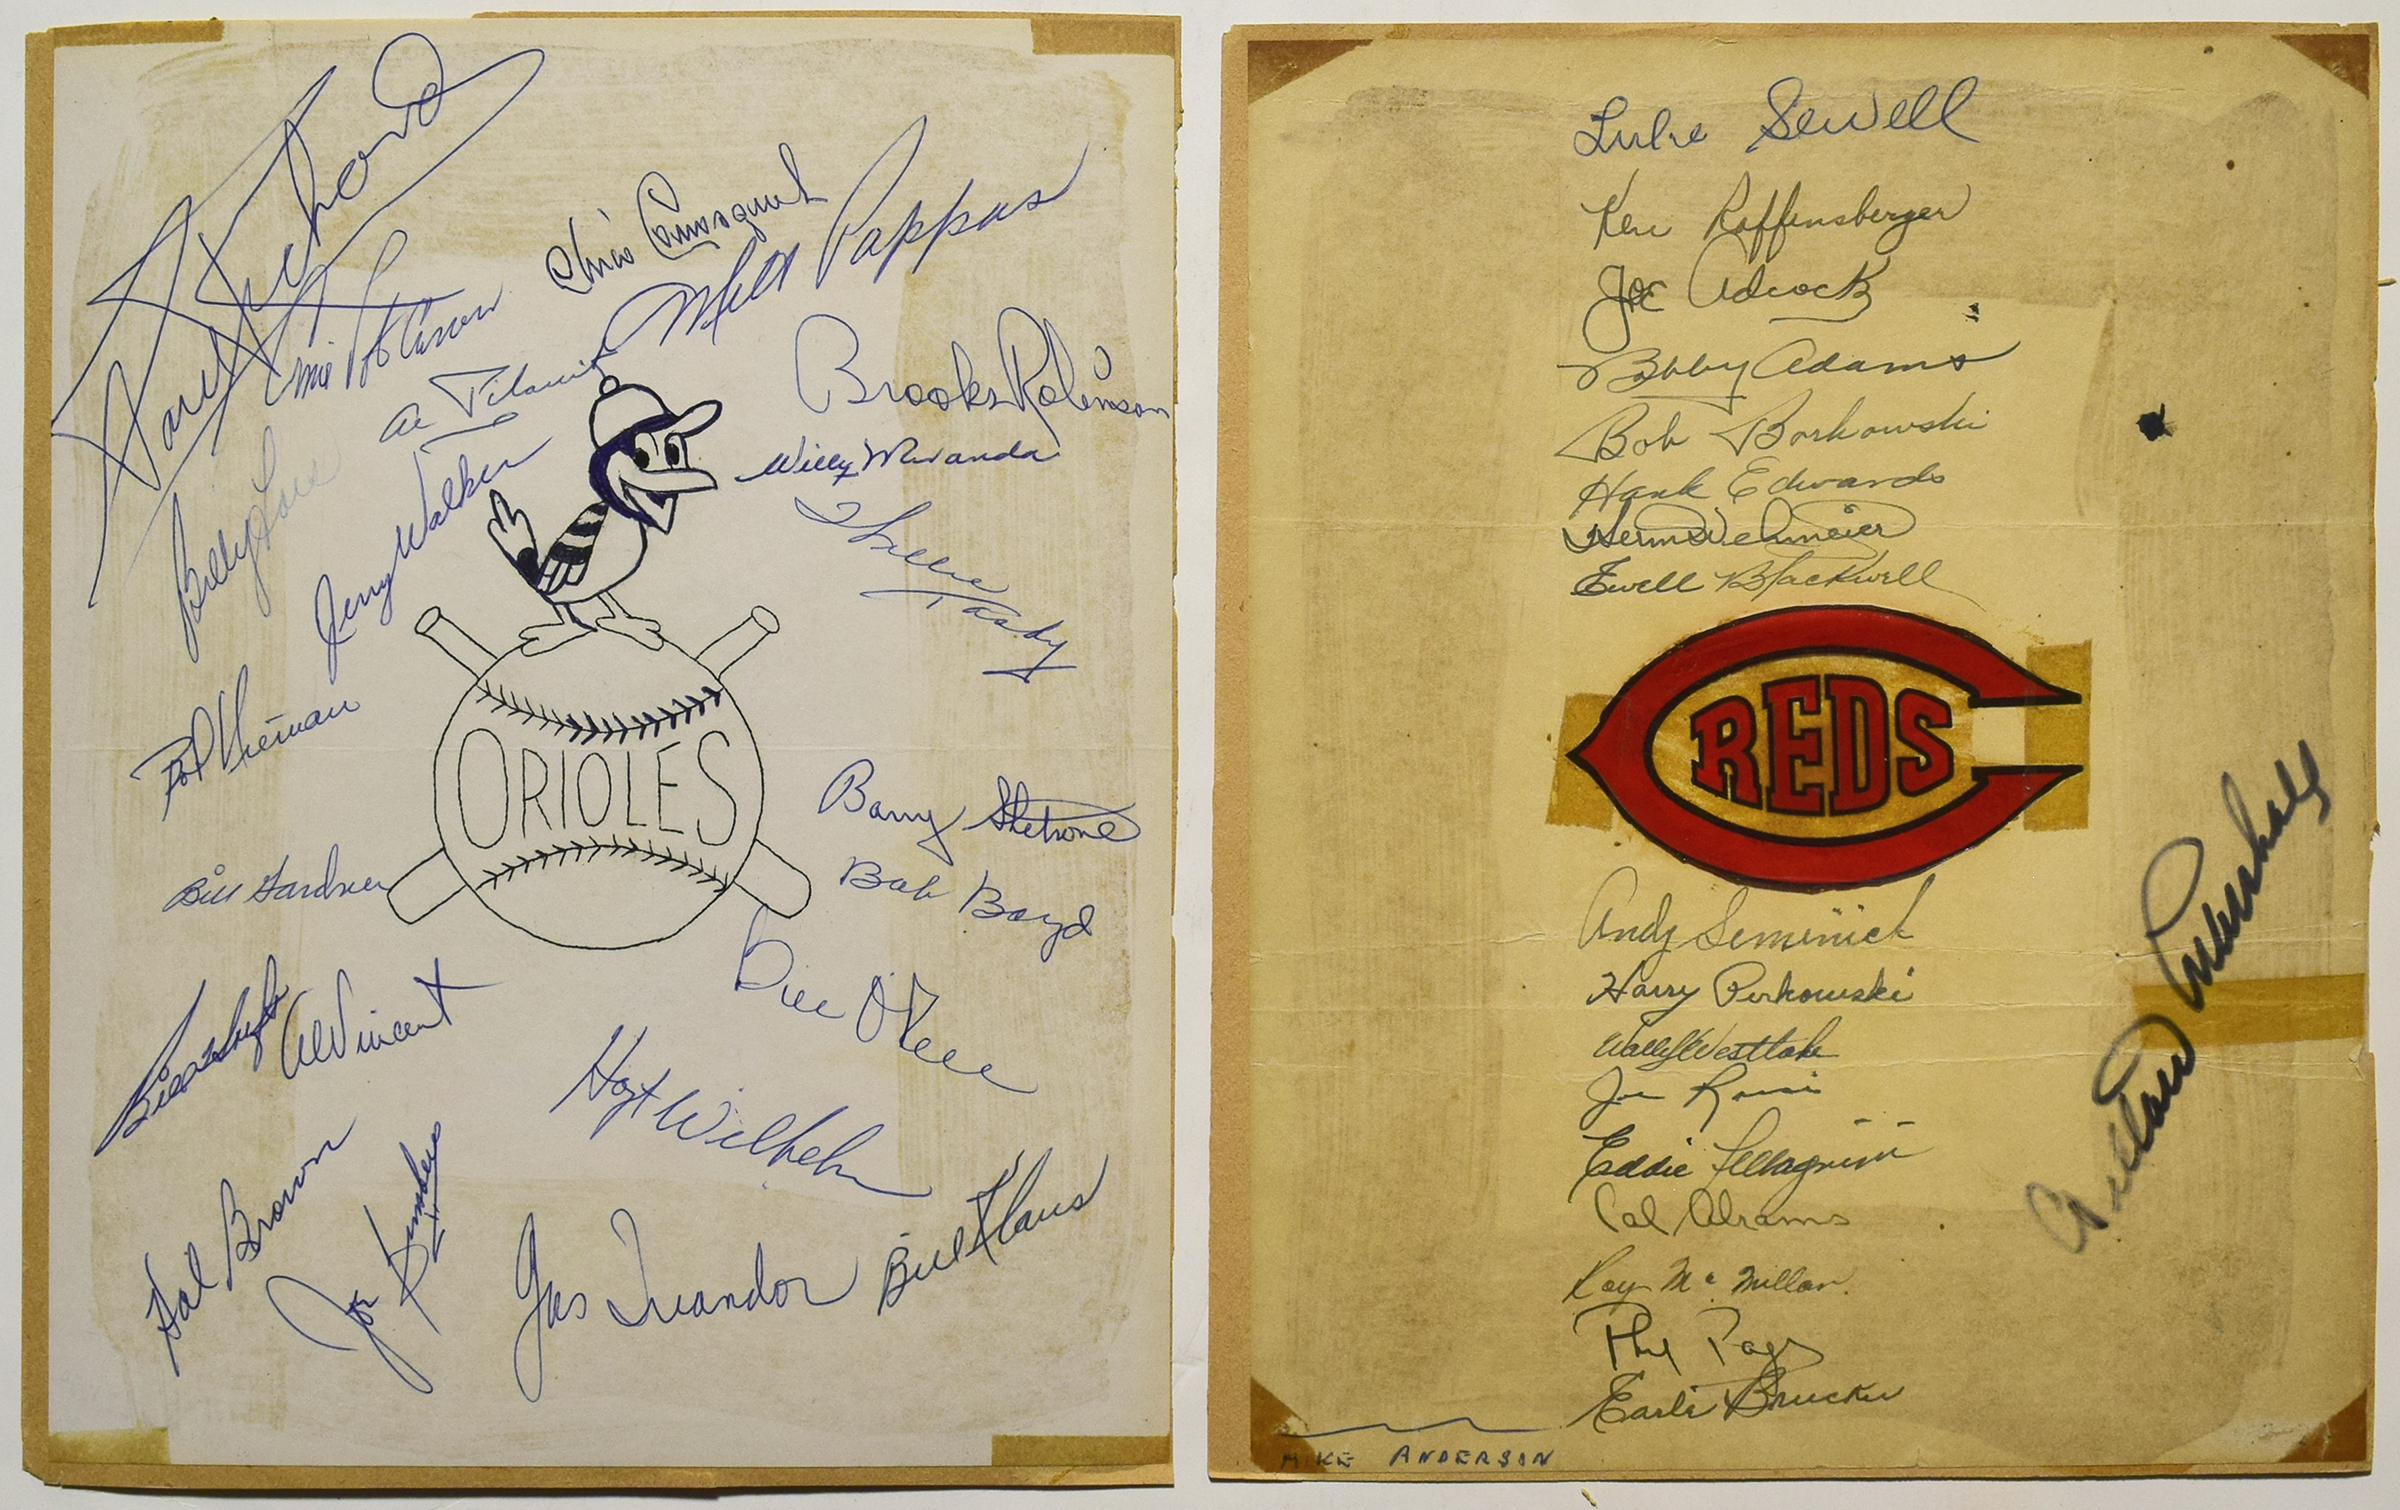 Paul Richards
Ernie
Chico Carrasquel
Milt Pappas
Al Pilarcik
Brooks Robinson
Willy Miranda
Willie Tasby
Billy Loes
Jerry Walker
ORIOLES
Barry Shetrone
Bob Boyd
Bill Gardner
Al Vincent
Hoyt Wilhelm
Hal Brown
Gus Triandos
Bill Klaus
Luke Sewell
Ken Raffensberger
Joe Adcock
Bobby Adams
Bob Borkowski
Hank Edwards
Herm Wehmeier
Ewell Blackwell
REDS
Andy Seminick
Harry Perkowski
Wally Westlake
Joe Rossi
Eddie Pellagrini
Cal Abrams
Roy McMillan
Phil Page
Earle Brucker
Willard Marshall
MIKE ANDERSON